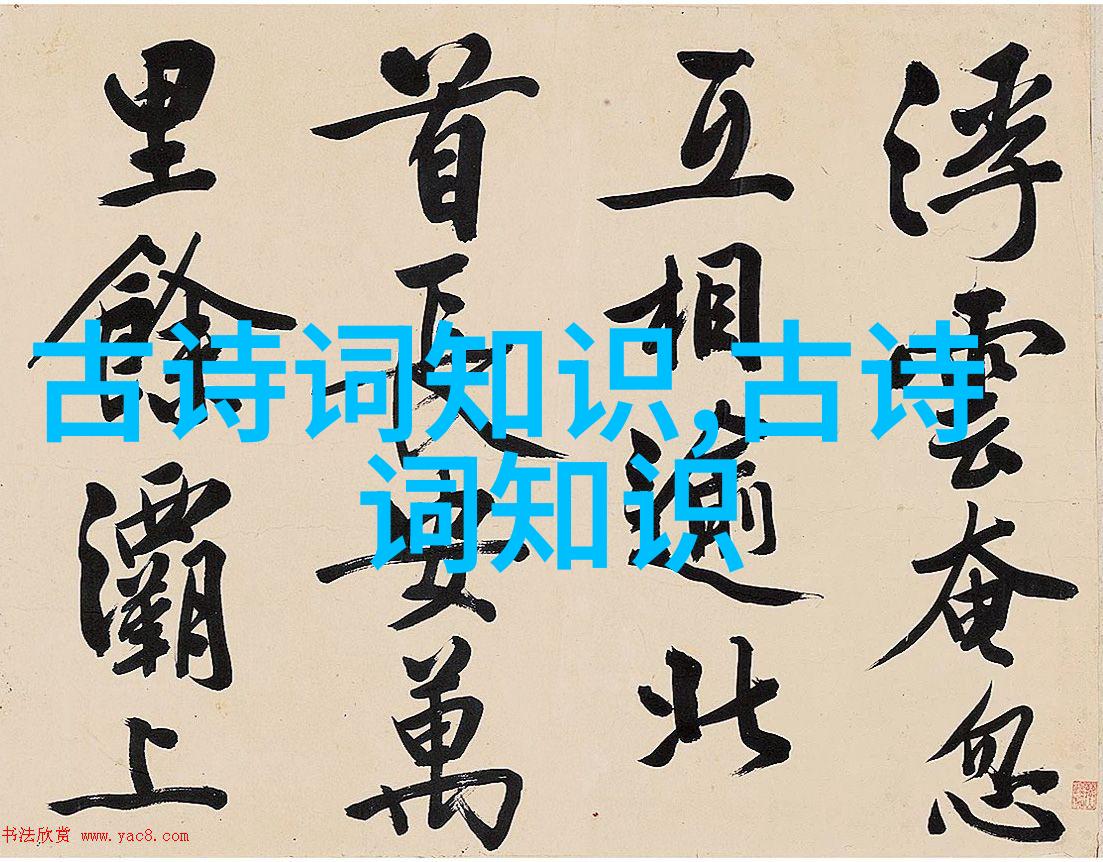 浮雲奄忽
互相逾北
首長安萬
里餘灞上
古诗词知识,古诗
词知识
书法欣赏 www.yac8.com